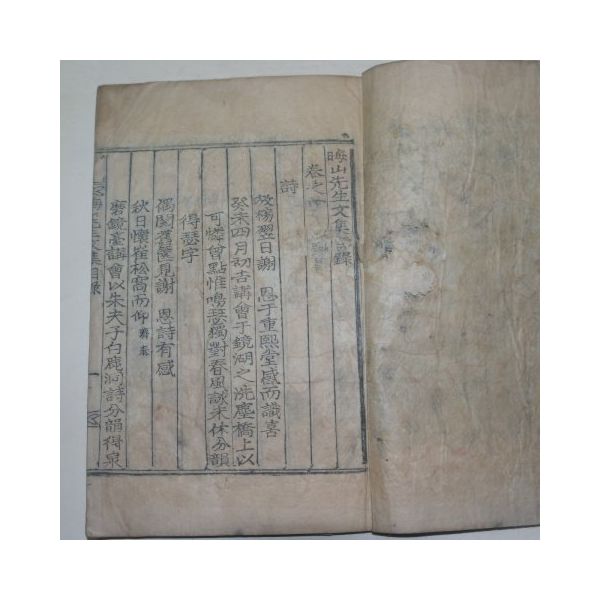 晦山先生文集目錄
卷之
詩
放榜翌日謝 恩于重熙堂感而識喜
癸未四月初吉講會于鏡湖之洗塵橋上以
可憐曾點惟鳴瑟獨對春風詠未休分韻
得瑟字
偶閱舊篋見謝 恩詩有感
秋日懷崔松窩而仰
磨鏡臺講會以朱夫子白鹿洞詩分韻得泉
先生文集目錄 一